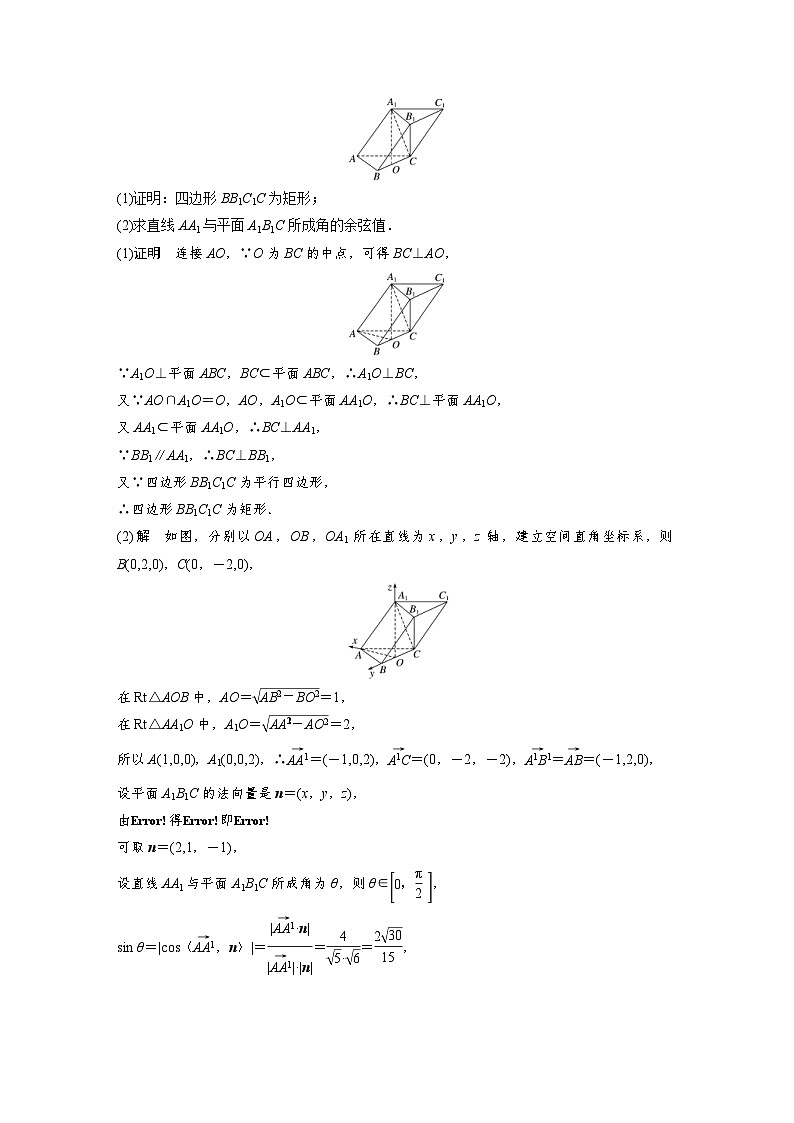 A₁ C₁
B₁
A C
B O
(1)证明：四边形BB₁C₁C为矩形；
(2)求直线AA₁与平面A₁B₁C所成角的余弦值．
(1)证明 连接AO，∵O为BC的中点，可得BC⊥AO，
A₁ C₁
B₁
A C
B O
∵A₁O⊥平面ABC，BC⊂平面ABC，∴A₁O⊥BC，
又∵AO∩A₁O＝O，AO，A₁O⊂平面AA₁O，∴BC⊥平面AA₁O，
又AA₁⊂平面AA₁O，∴BC⊥AA₁，
∵BB₁∥AA₁，∴BC⊥BB₁，
又∵四边形BB₁C₁C为平行四边形，
∴四边形BB₁C₁C为矩形．
(2)解 如图，分别以OA，OB，OA₁所在直线为x，y，z轴，建立空间直角坐标系，则
B(0,2,0)，C(0，－2,0)，
z
A₁ C₁
B₁
x
A C
B O
y
在Rt△AOB中，AO＝√(AB²－BO²)＝1，
在Rt△AA₁O中，A₁O＝√(AA₁²－AO²)＝2，
所以A(1,0,0)，A₁(0,0,2)，∴AA₁→＝(－1,0,2)，A₁C→＝(0，－2，－2)，A₁B₁→＝AB→＝(－1,2,0)，
设平面A₁B₁C的法向量是n＝(x，y，z)，
由Error!得Error!即Error!
可取n＝(2,1，－1)，
设直线AA₁与平面A₁B₁C所成角为θ，则θ∈[0，π/2]，
sin θ＝|cos〈AA₁→，n〉|＝|AA₁→·n|/(|AA₁→|·|n|)＝4/(√5·√6)＝2√30/15，